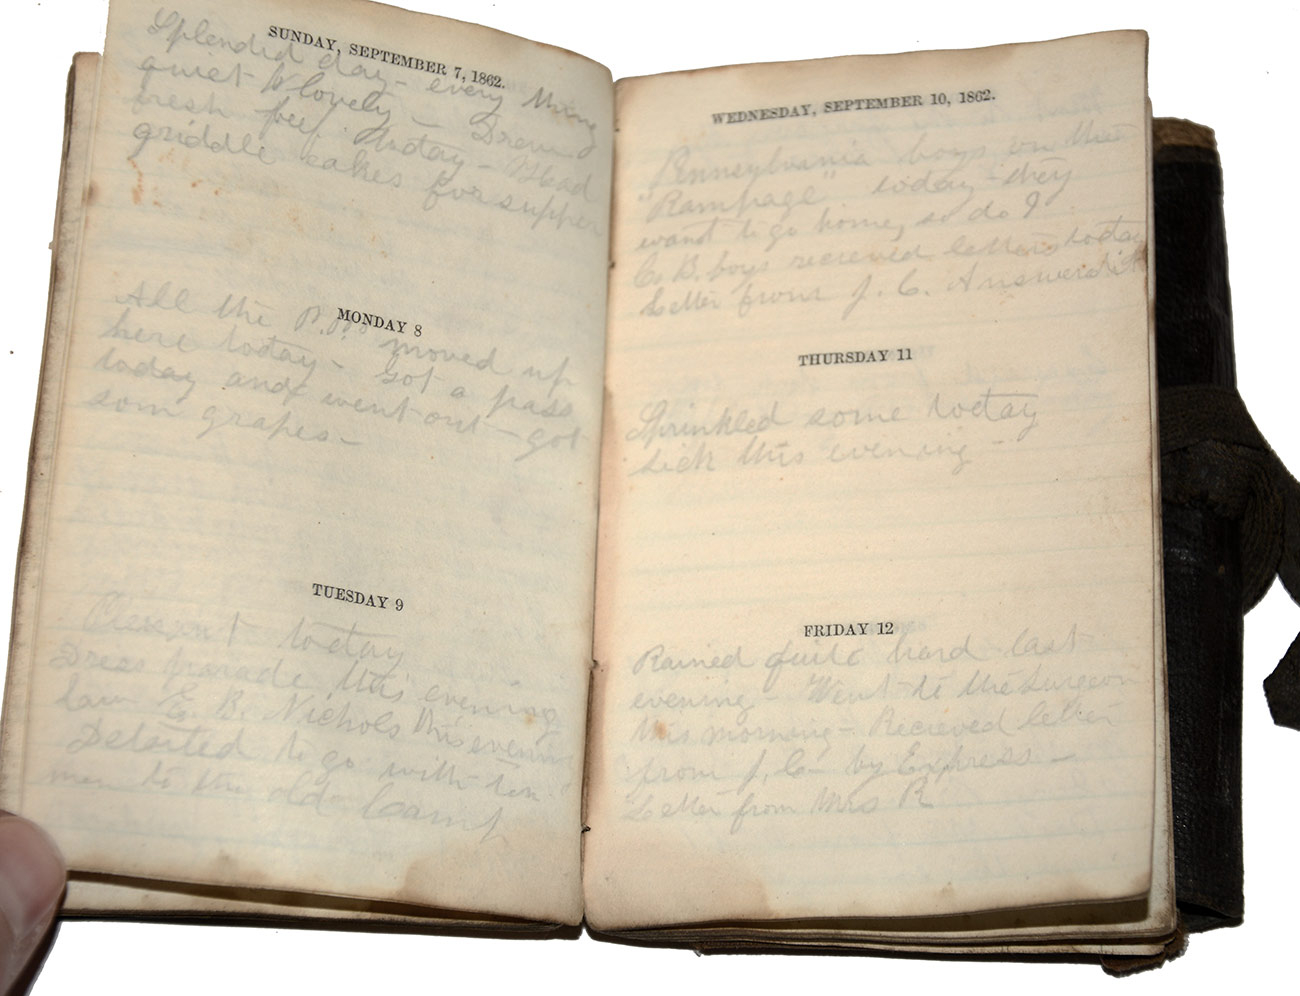 SUNDAY, SEPTEMBER 7, 1862.
Splendid day - every thing
quiet & lovely - Drew
fresh beef today - Had
griddle cakes for supper
MONDAY 8
All the moved up
here today - Got a pass
today and went out - got
som grapes -
TUESDAY 9
today
Dress parade this evening
saw E. B. Nichols this evening
Detailed to go with ten
men to the old Camp
WEDNESDAY, SEPTEMBER 10, 1862.
Pennsylvania boys on the
"Rampage" today - they
want to go home, so do I
C. B. boys recieved letters today
Letter from J. C. Answerd it
THURSDAY 11
Sprinkled some today
sick this evening -
FRIDAY 12
Rained quite hard last
evening - Went to the Surgeon
this morning - Recieved letter
from J. C. by Express -
Letter from Mrs R